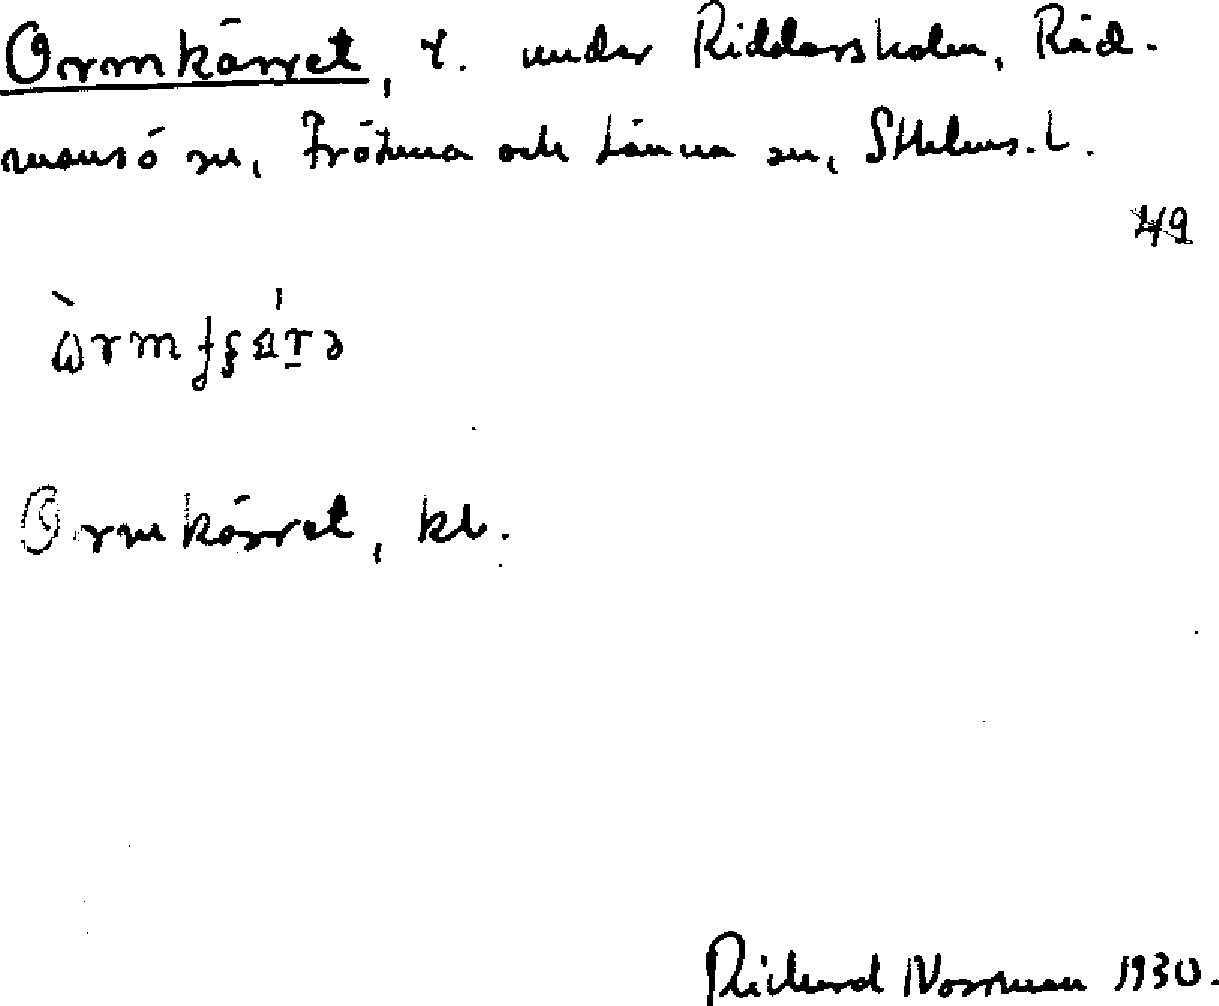 Ormkärret, t. under Riddersholm, Råd-
mansö sn, Frötuna och Länna sn, Sthlms. L.
49
Ormkärret, kb.
Rickard Norrman 1930.